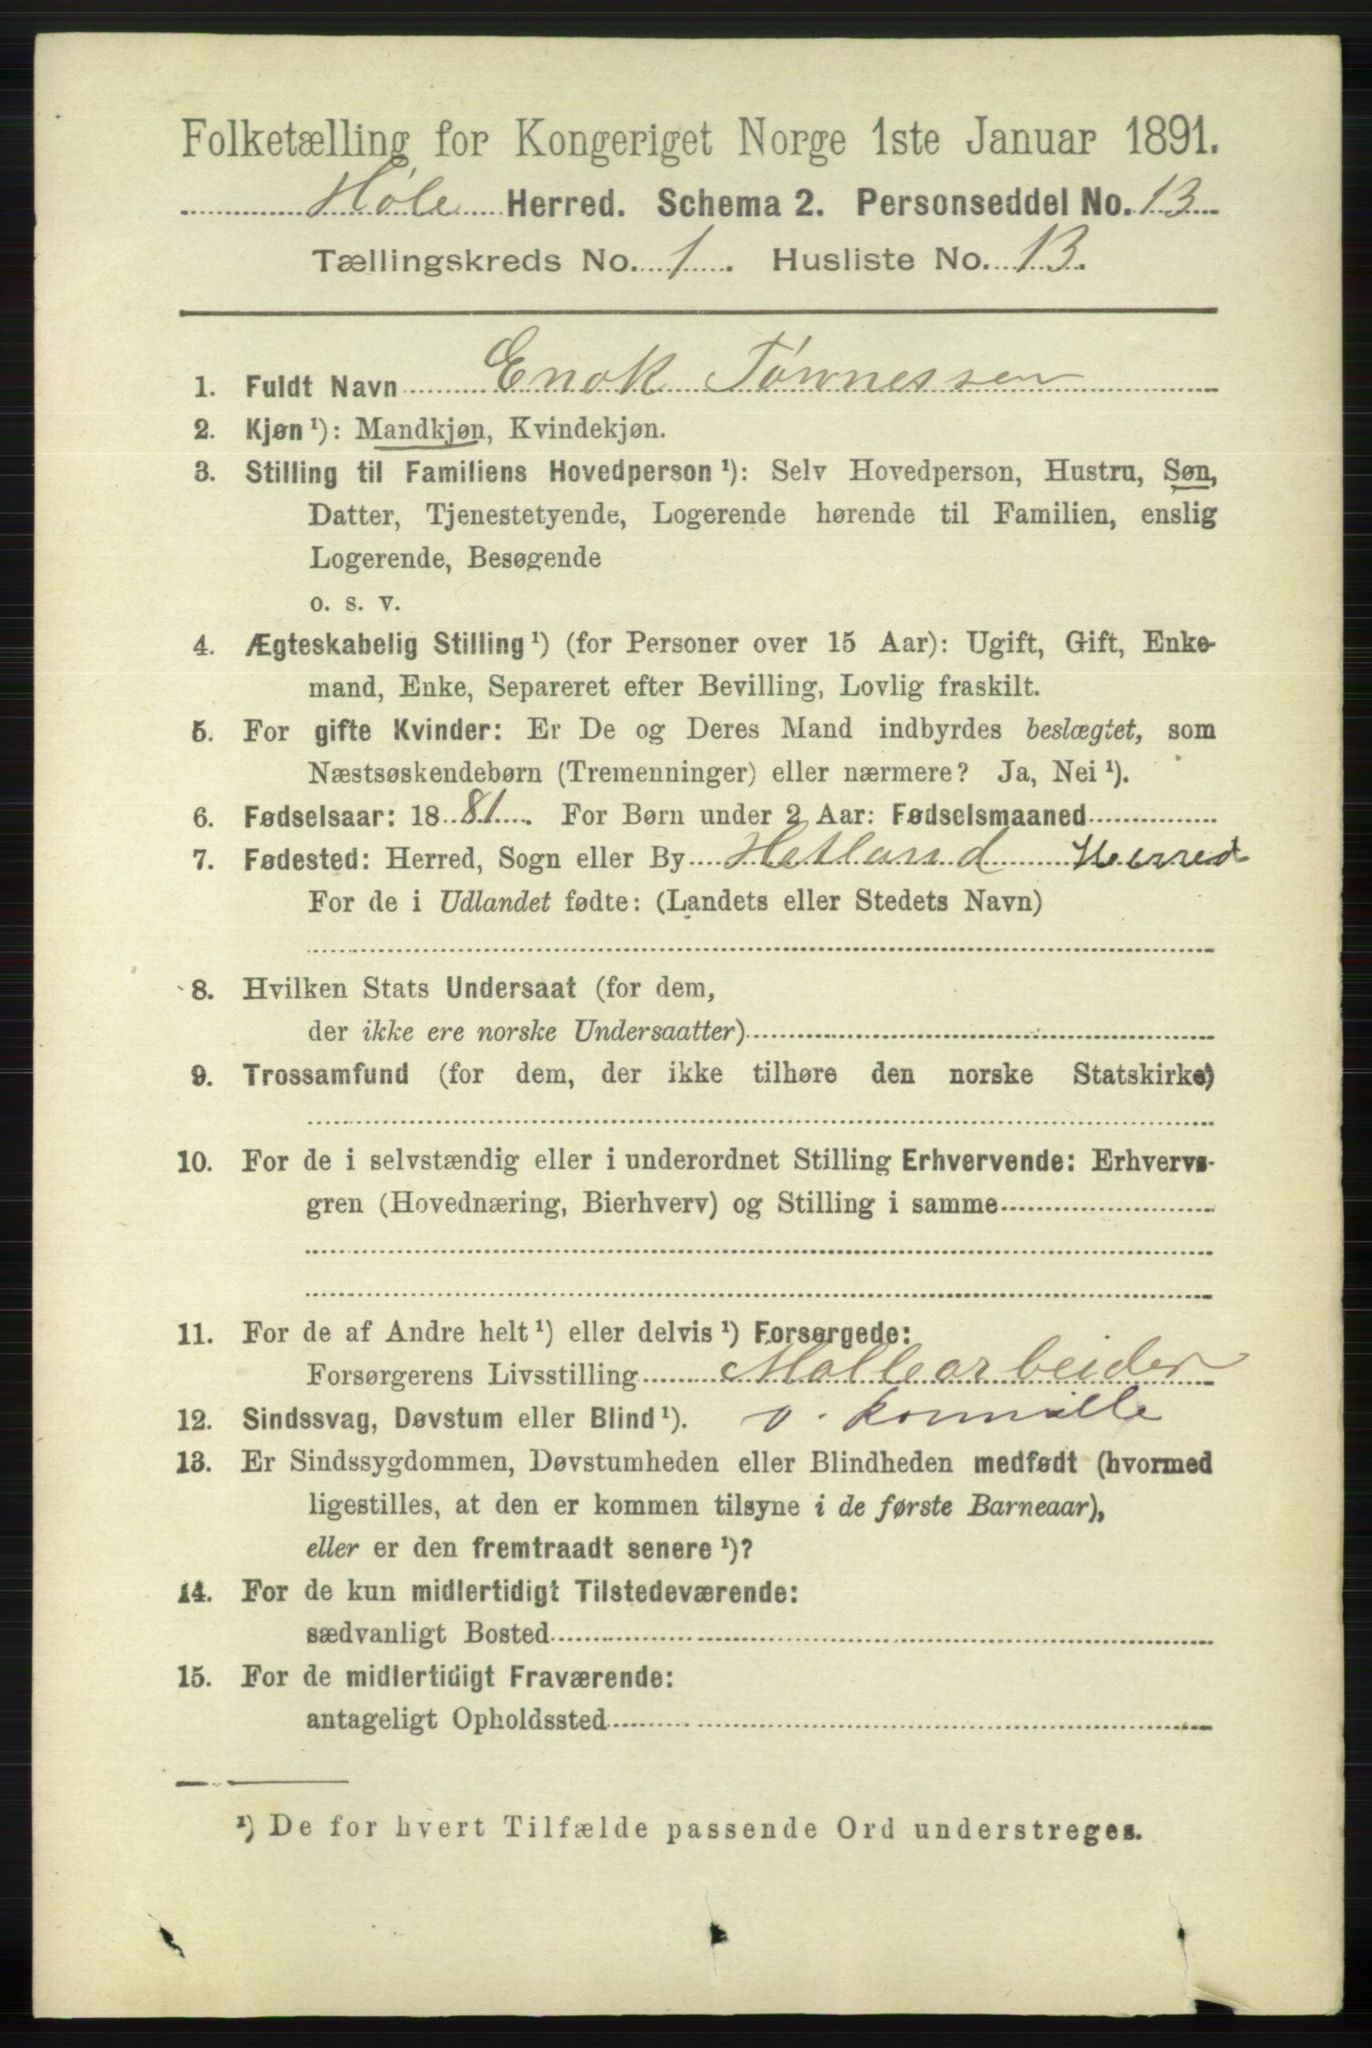 Folketælling for Kongeriget Norge 1ste Januar 1891.
Høle Herred. Schema 2. Personseddel No. 13
Tællingskreds No. 1. Husliste No. 13.
1. Fuldt Navn Enok Tønnessen
2. Kjøn ¹): Mandkjøn, Kvindekjøn.
3. Stilling til Familiens Hovedperson ¹): Selv Hovedperson, Hustru, Søn,
Datter, Tjenestetyende, Logerende hørende til Familien, enslig
Logerende, Besøgende
o. s. v.
4. Ægteskabelig Stilling ¹) (for Personer over 15 Aar): Ugift, Gift, Enke-
mand, Enke, Separeret efter Bevilling, Lovlig fraskilt.
5. For gifte Kvinder: Er De og Deres Mand indbyrdes beslægtet, som
Næstsøskendebørn (Tremenninger) eller nærmere? Ja, Nei ¹).
6. Fødselsaar: 1881. For Børn under 2 Aar: Fødselsmaaned
7. Fødested: Herred, Sogn eller By Hetland Herred
For de i Udlandet fødte: (Landets eller Stedets Navn)
8. Hvilken Stats Undersaat (for dem,
der ikke ere norske Undersaatter)
9. Trossamfund (for dem, der ikke tilhøre den norske Statskirke)
10. For de i selvstændig eller i underordnet Stilling Erhvervende: Erhvervs-
gren (Hovednæring, Bierhverv) og Stilling i samme
11. For de af Andre helt ¹) eller delvis ¹) Forsørgede:
Forsørgerens Livsstilling Møllearbeider
12. Sindssvag, Døvstum eller Blind ¹). v. kornmølle
13. Er Sindssygdommen, Døvstumheden eller Blindheden medfødt (hvormed
ligestilles, at den er kommen tilsyne i de første Barneaar),
eller er den fremtraadt senere ¹)?
14. For de kun midlertidigt Tilstedeværende:
sædvanligt Bosted
15. For de midlertidigt Fraværende:
antageligt Opholdssted
¹) De for hvert Tilfælde passende Ord understreges.